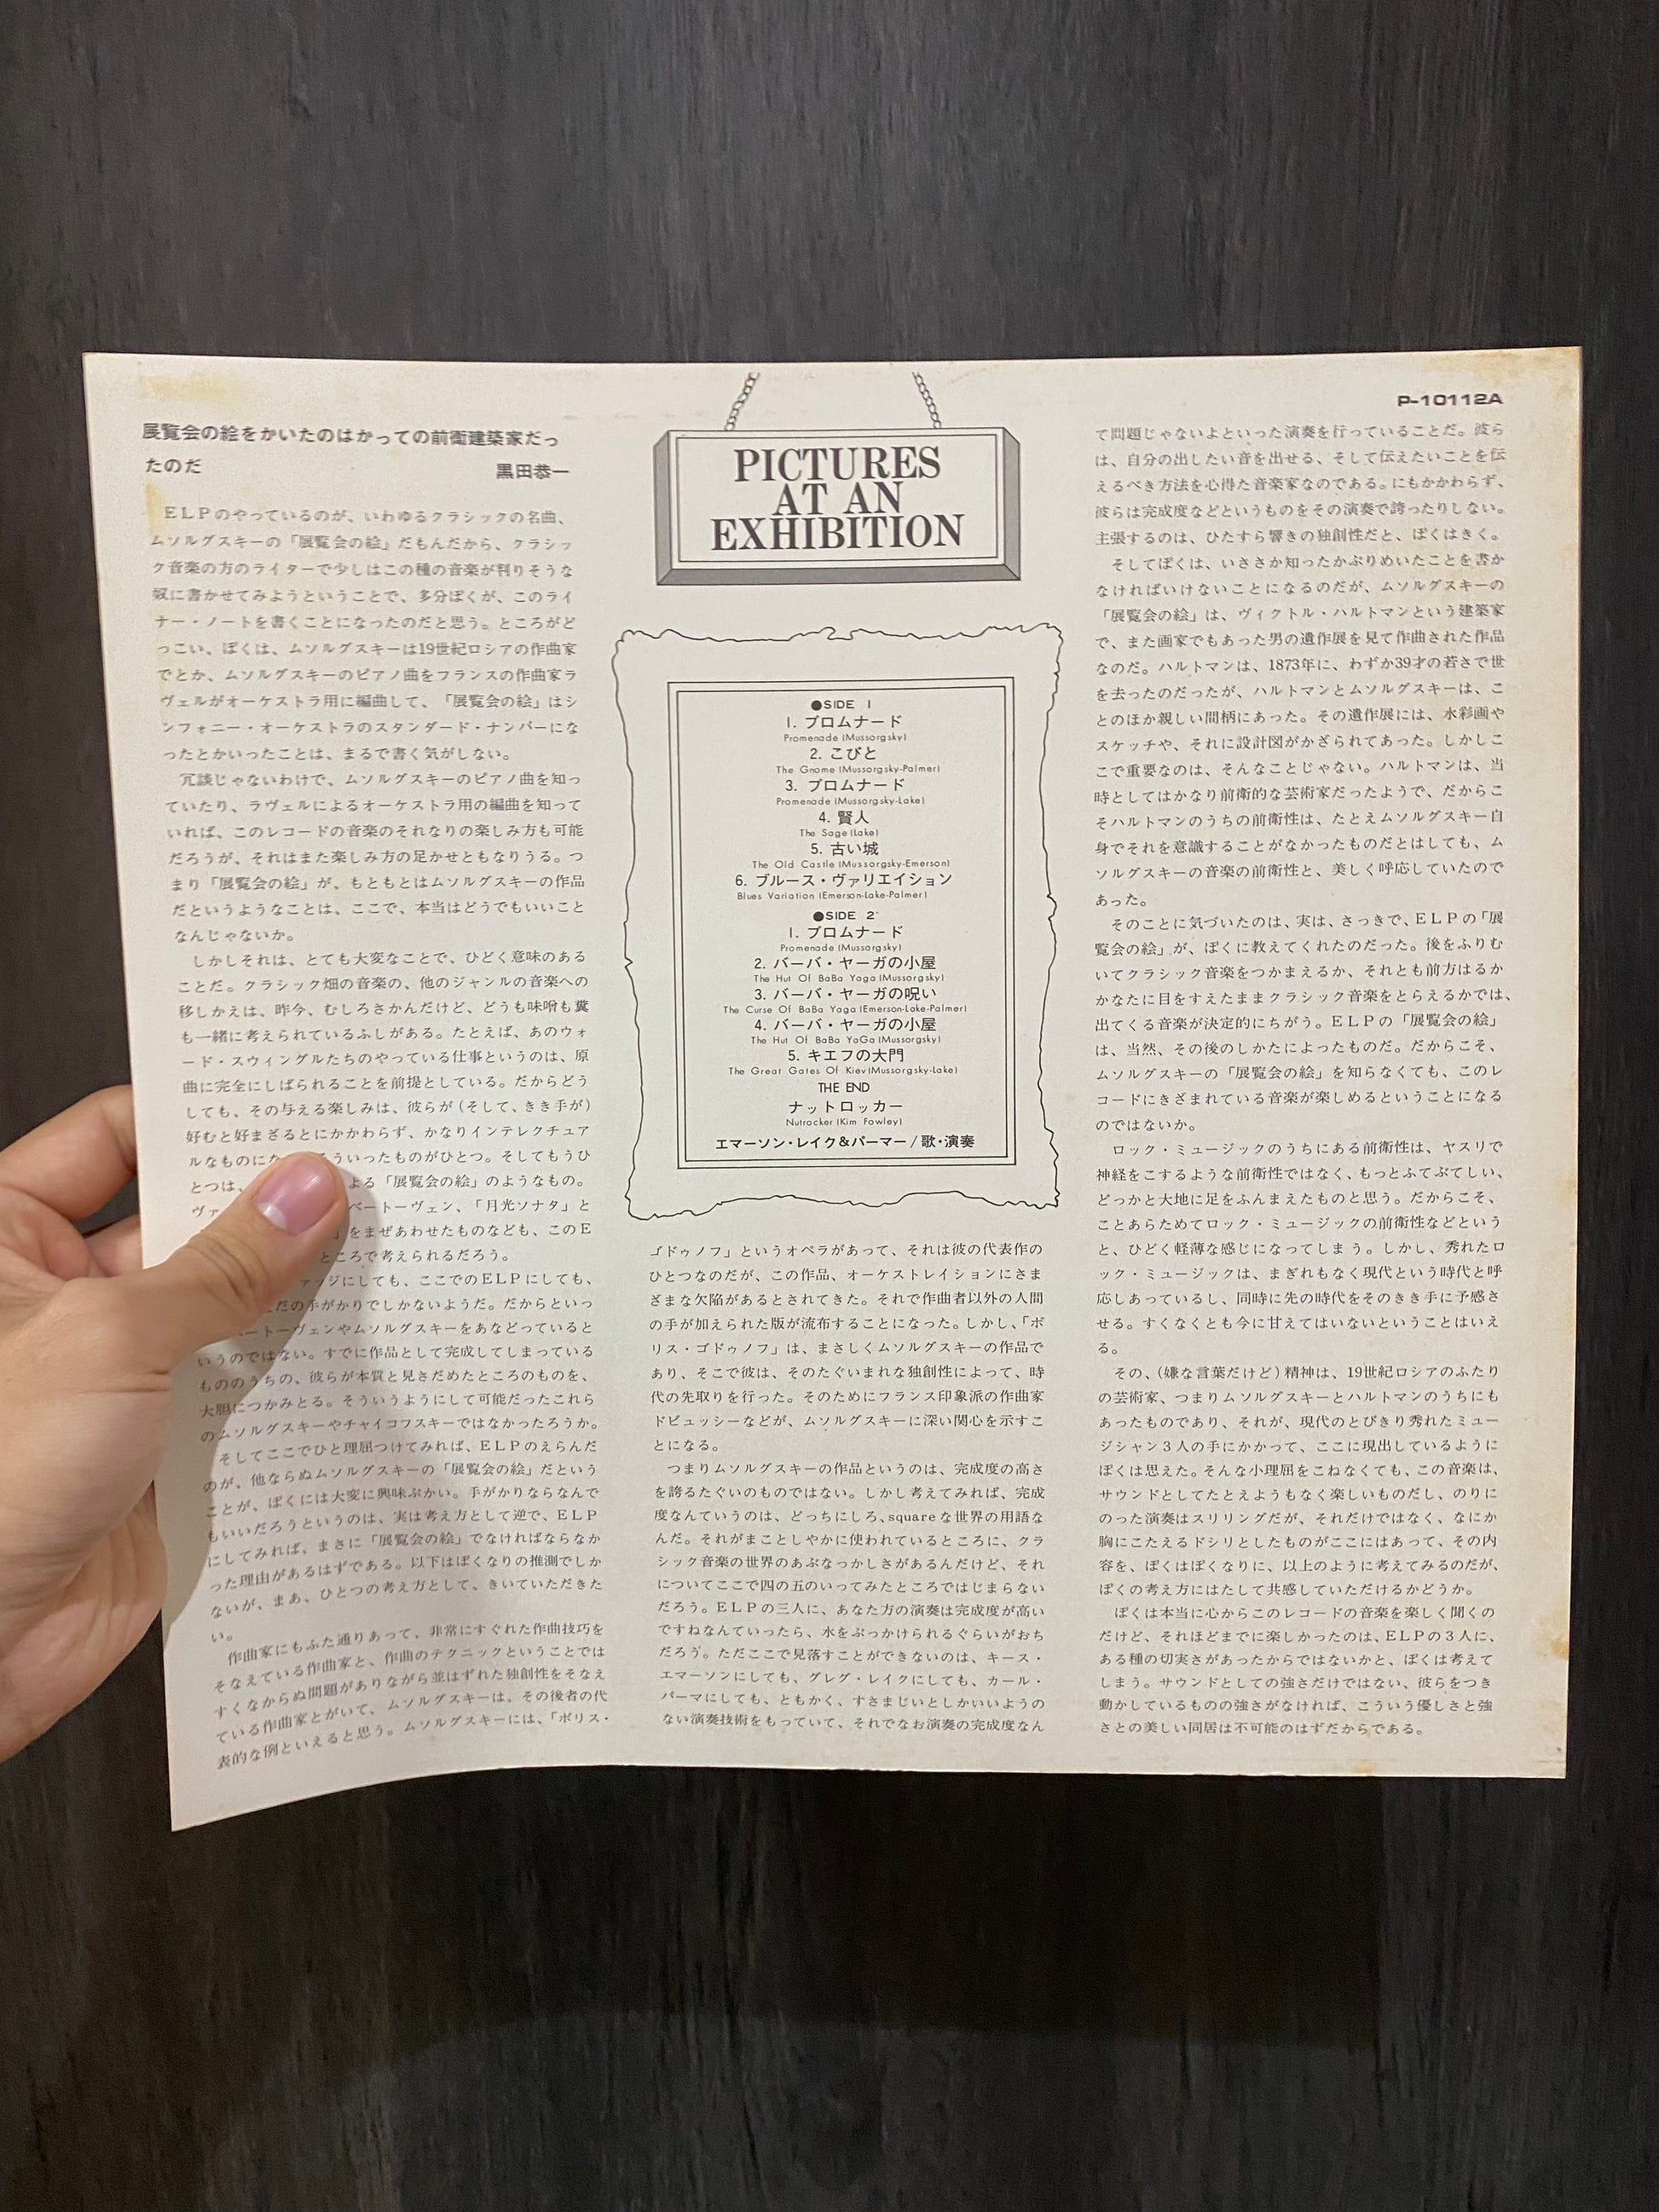 展覧会の絵をかいたのはかっての前衛建築家だっ
たのだ 黒田恭一
ELPのやっているのが、いわゆるクラシックの名曲、
ムソルグスキーの「展覧会の絵」だもんだから、クラシッ
ク音楽の方のライターで少しはこの種の音楽が判りそうな
奴に書かせてみようということで、多分ぼくが、このライ
ナー・ノートを書くことになったのだと思う。ところがど
っこい、ぼくは、ムソルグスキーは19世紀ロシアの作曲家
でとか、ムソルグスキーのピアノ曲をフランスの作曲家ラ
ヴェルがオーケストラ用に編曲して、「展覧会の絵」はシ
ンフォニー・オーケストラのスタンダード・ナンバーにな
ったとかいったことは、まるで書く気がしない。
冗談じゃないわけで、ムソルグスキーのピアノ曲を知っ
ていたり、ラヴェルによるオーケストラ用の編曲を知って
いれば、このレコードの音楽のそれなりの楽しみ方も可能
だろうが、それはまた楽しみ方の足かせともなりうる。つ
まり「展覧会の絵」が、もともとはムソルグスキーの作品
だというようなことは、ここで、本当はどうでもいいこと
なんじゃないか。
しかしそれは、とても大変なことで、ひどく意味のある
ことだ。クラシック畑の音楽の、他のジャンルの音楽への
移しかえは、昨今、むしろさかんだけど、どうも味噌も糞
も一緒に考えられているふしがある。たとえば、あのウォ
ード・スウィングルたちのやっている仕事というのは、原
曲に完全にしばられることを前提としている。だからどう
しても、その与える楽しみは、彼らが(そして、きき手が)
好むと好まざるとにかかわらず、かなりインテレクチュア
ルなものにな ういったものがひとつ。そしてもうひ
とつは、 よる「展覧会の絵」のようなもの。
ヴァ ベートーヴェン、「月光ソナタ」と
」をまぜあわせたものなども、このE
ところで考えられるだろう。
ァッジにしても、ここでのELPにしても、
だの手がかりでしかないようだ。だからといっ
ートーヴェンやムソルグスキーをあなどっていると
いうのではない。すでに作品として完成してしまっている
もののうちの、彼らが本質と見さだめたところのものを、
大胆につかみとる。そういうようにして可能だったこれら
のムソルグスキーやチャイコフスキーではなかったろうか。
そしてここでひと理屈つけてみれば、ELPのえらんだ
のが、他ならぬムソルグスキーの「展覧会の絵」だという
ことが、ぼくには大変に興味ぶかい。手がかりならなんで
もいいだろうというのは、実は考え方として逆で、ELP
にしてみれば、まさに「展覧会の絵」でなければならなか
った理由があるはずである。以下はぼくなりの推測でしか
ないが、まあ、ひとつの考え方として、きいていただきた
い。
作曲家にもふた通りあって、非常にすぐれた作曲技巧を
そなえている作曲家と、作曲のテクニックということでは
すくなからぬ問題がありながら並はずれた独創性をそなえ
ている作曲家とがいて、ムソルグスキーは、その後者の代
表的な例といえると思う。ムソルグスキーには、「ボリス・
PICTURES
AT AN
EXHIBITION
●SIDE 1
1. プロムナード
Promenade (Mussorgsky)
2. こびと
The Gnome (Mussorgsky-Palmer)
3. プロムナード
Promenade (Mussorgsky-Lake)
4. 賢人
The Sage (Lake)
5. 古い城
The Old Castle (Mussorgsky-Emerson)
6. ブルース・ヴァリエイション
Blues Variation (Emerson-Lake-Palmer)
●SIDE 2
1. プロムナード
Promenade (Mussorgsky)
2. バーバ・ヤーガの小屋
The Hut Of BaBa Yaga (Mussorgsky)
3. バーバ・ヤーガの呪い
The Curse Of BaBa Yaga (Emerson-Lake-Palmer)
4. バーバ・ヤーガの小屋
The Hut Of BaBa YaGa (Mussorgsky)
5. キエフの大門
The Great Gates Of Kiev (Mussorgsky-Lake)
THE END
ナットロッカー
Nutrocker (Kim Fowley)
エマーソン・レイク&パーマー/歌・演奏
ゴドゥノフ」というオペラがあって、それは彼の代表作の
ひとつなのだが、この作品、オーケストレイションにさま
ざまな欠陥があるとされてきた。それで作曲者以外の人間
の手が加えられた版が流布することになった。しかし、「ボ
リス・ゴドゥノフ」は、まさしくムソルグスキーの作品で
あり、そこで彼は、そのたぐいまれな独創性によって、時
代の先取りを行った。そのためにフランス印象派の作曲家
ドビュッシーなどが、ムソルグスキーに深い関心を示すこ
とになる。
つまりムソルグスキーの作品というのは、完成度の高さ
を誇るたぐいのものではない。しかし考えてみれば、完成
度なんていうのは、どっちにしろ、squareな世界の用語な
んだ。それがまことしやかに使われているところに、クラ
シック音楽の世界のあぶなっかしさがあるんだけど、それ
についてここで四の五のいってみたところではじまらない
だろう。ELPの三人に、あなた方の演奏は完成度が高い
ですねなんていったら、水をぶっかけられるぐらいがおち
だろう。ただここで見落すことができないのは、キース・
エマーソンにしても、グレグ・レイクにしても、カール・
パーマにしても、ともかく、すさまじいとしかいいようの
ない演奏技術をもっていて、それでなお演奏の完成度なん
P-10112A
て問題じゃないよといった演奏を行っていることだ。彼ら
は、自分の出したい音を出せる、そして伝えたいことを伝
えるべき方法を心得た音楽家なのである。にもかかわらず、
彼らは完成度などというものをその演奏で誇ったりしない。
主張するのは、ひたすら響きの独創性だと、ぼくはきく。
そしてぼくは、いささか知ったかぶりめいたことを書か
なければいけないことになるのだが、ムソルグスキーの
「展覧会の絵」は、ヴィクトル・ハルトマンという建築家
で、また画家でもあった男の遺作展を見て作曲された作品
なのだ。ハルトマンは、1873年に、わずか39才の若さで世
を去ったのだったが、ハルトマンとムソルグスキーは、こ
とのほか親しい間柄にあった。その遺作展には、水彩画や
スケッチや、それに設計図がかざられてあった。しかしこ
こで重要なのは、そんなことじゃない。ハルトマンは、当
時としてはかなり前衛的な芸術家だったようで、だからこ
そハルトマンのうちの前衛性は、たとえムソルグスキー自
身でそれを意識することがなかったものだとはしても、ム
ソルグスキーの音楽の前衛性と、美しく呼応していたので
あった。
そのことに気づいたのは、実は、さっきで、ELPの「展
覧会の絵」が、ぼくに教えてくれたのだった。後をふりむ
いてクラシック音楽をつかまえるか、それとも前方はるか
かなたに目をすえたままクラシック音楽をとらえるかでは、
出てくる音楽が決定的にちがう。ELPの「展覧会の絵」
は、当然、その後のしかたによったものだ。だからこそ、
ムソルグスキーの「展覧会の絵」を知らなくても、このレ
コードにきざまれている音楽が楽しめるということになる
のではないか。
ロック・ミュージックのうちにある前衛性は、ヤスリで
神経をこするような前衛性ではなく、もっとふてぶてしい、
どっかと大地に足をふんまえたものと思う。だからこそ、
ことあらためてロック・ミュージックの前衛性などという
と、ひどく軽薄な感じになってしまう。しかし、秀れたロ
ック・ミュージックは、まぎれもなく現代という時代と呼
応しあっているし、同時に先の時代をそのきき手に予感さ
せる。すくなくとも今に甘えてはいないということはいえ
る。
その、(嫌な言葉だけど)精神は、19世紀ロシアのふたり
の芸術家、つまりムソルグスキーとハルトマンのうちにも
あったものであり、それが、現代のとびきり秀れたミュー
ジシャン3人の手にかかって、ここに現出しているように
ぼくは思えた。そんな小理屈をこねなくても、この音楽は、
サウンドとしてたとえようもなく楽しいものだし、のりに
のった演奏はスリリングだが、それだけではなく、なにか
胸にこたえるドシリとしたものがここにはあって、その内
容を、ぼくはぼくなりに、以上のように考えてみるのだが、
ぼくの考え方にはたして共感していただけるかどうか。
ぼくは本当に心からこのレコードの音楽を楽しく聞くの
だけど、それほどまでに楽しかったのは、ELPの3人に、
ある種の切実さがあったからではないかと、ぼくは考えて
しまう。サウンドとしての強さだけではない、彼らをつき
動かしているものの強さがなければ、こういう優しさと強
さとの美しい同居は不可能のはずだからである。